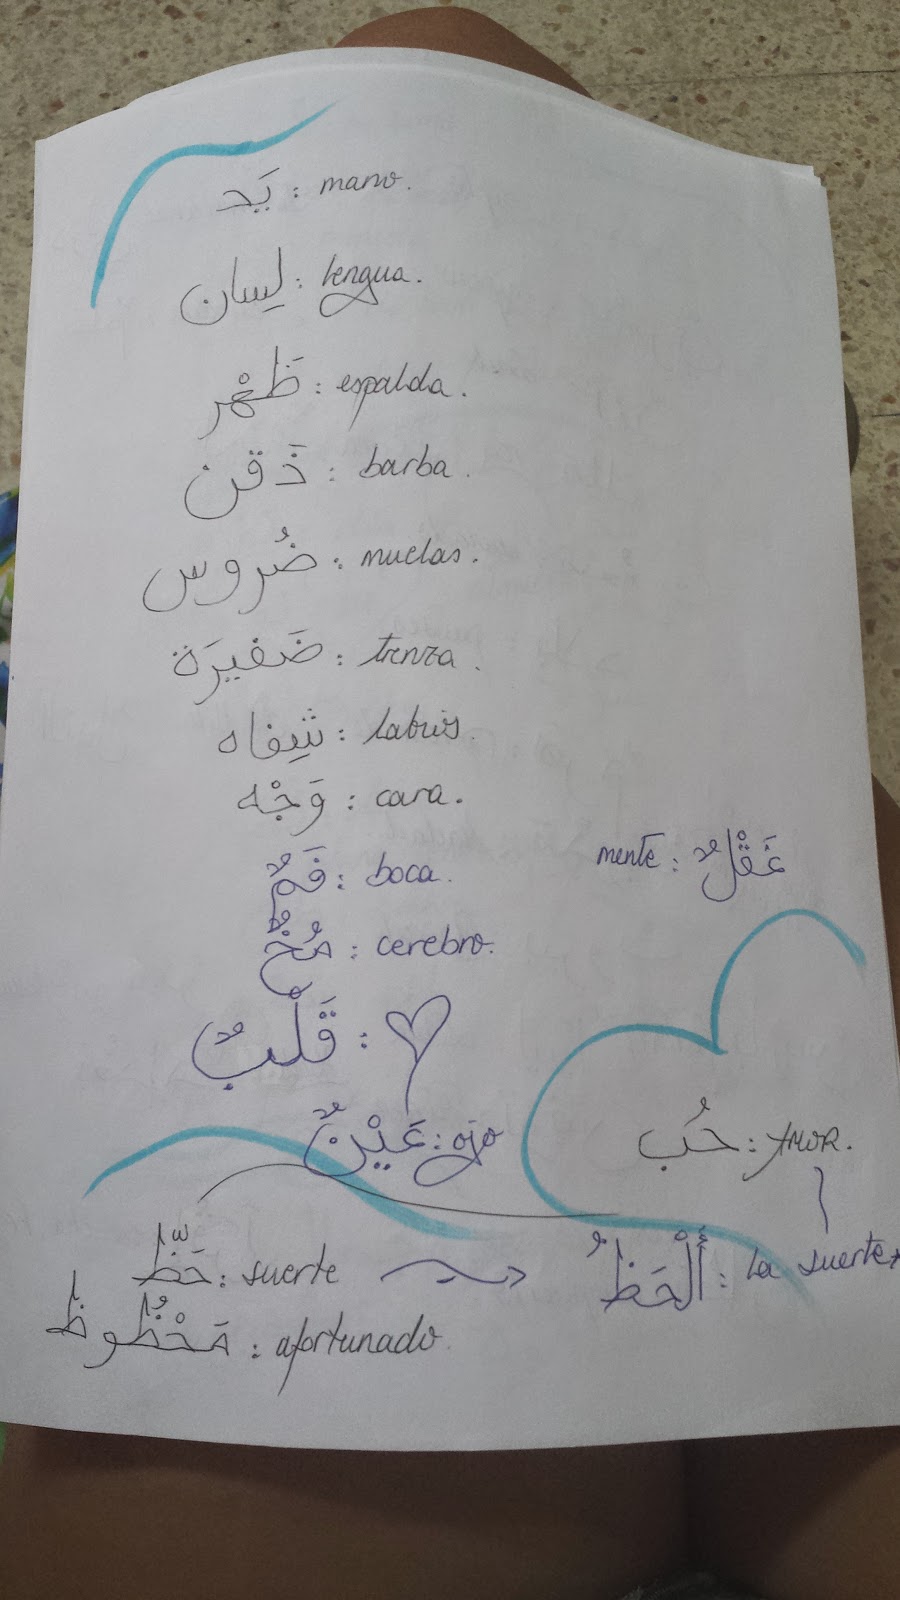 يَد : mano.
لِسان : lengua.
ظَهْر : espalda.
ذَقن : barba.
ضُروس : muelas.
ضَفيرَة : trenza.
شِفاه : labios.
وَجْه : cara.
فَمٌ : boca.
مُخٌّ : cerebro.
عَقْلٌ : mente
قَلْبٌ :
عَيْنٌ : ojo
حُب : AMOR.
حَظّ : suerte
أَلْحَظُ : la suerte
مَحْظُوظ : afortunado.